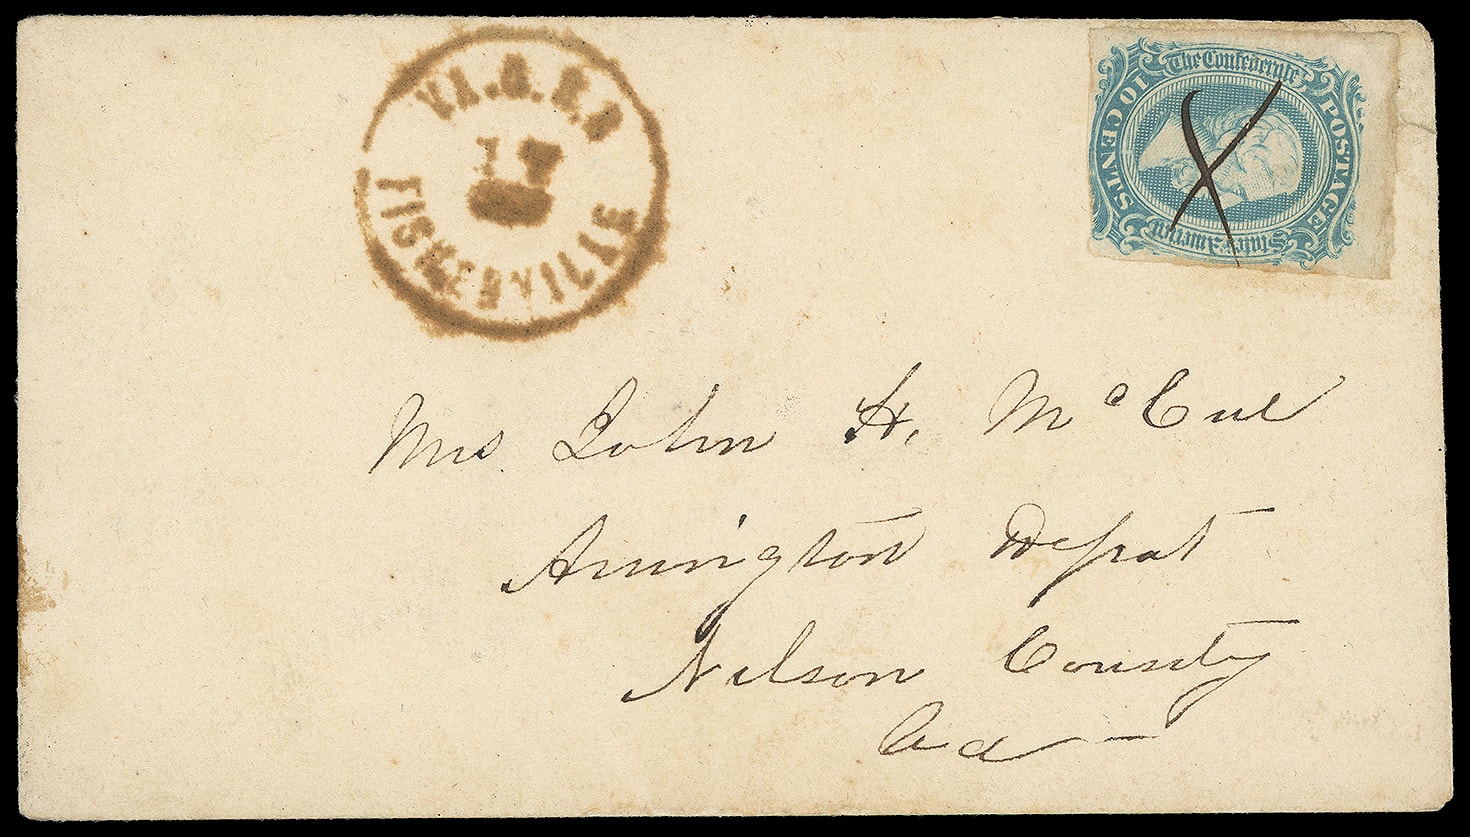 VA. C. R.R
FISHERSVILLE
The Confederate
States America
POSTAGE
10 CENTS
X
Mrs John H. McCue
Arrington Depot
Nelson County
Va